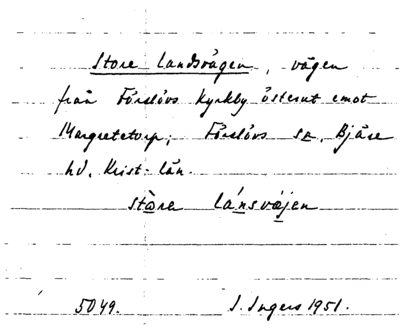 Store Landsvägen, vägen
från Förslövs Kyrkby österut emot
Margretetorp; Förslövs sn, Bjäre
hd. Krist. län.
stòre lánsvæjen
5049. I. Ingers 1951.